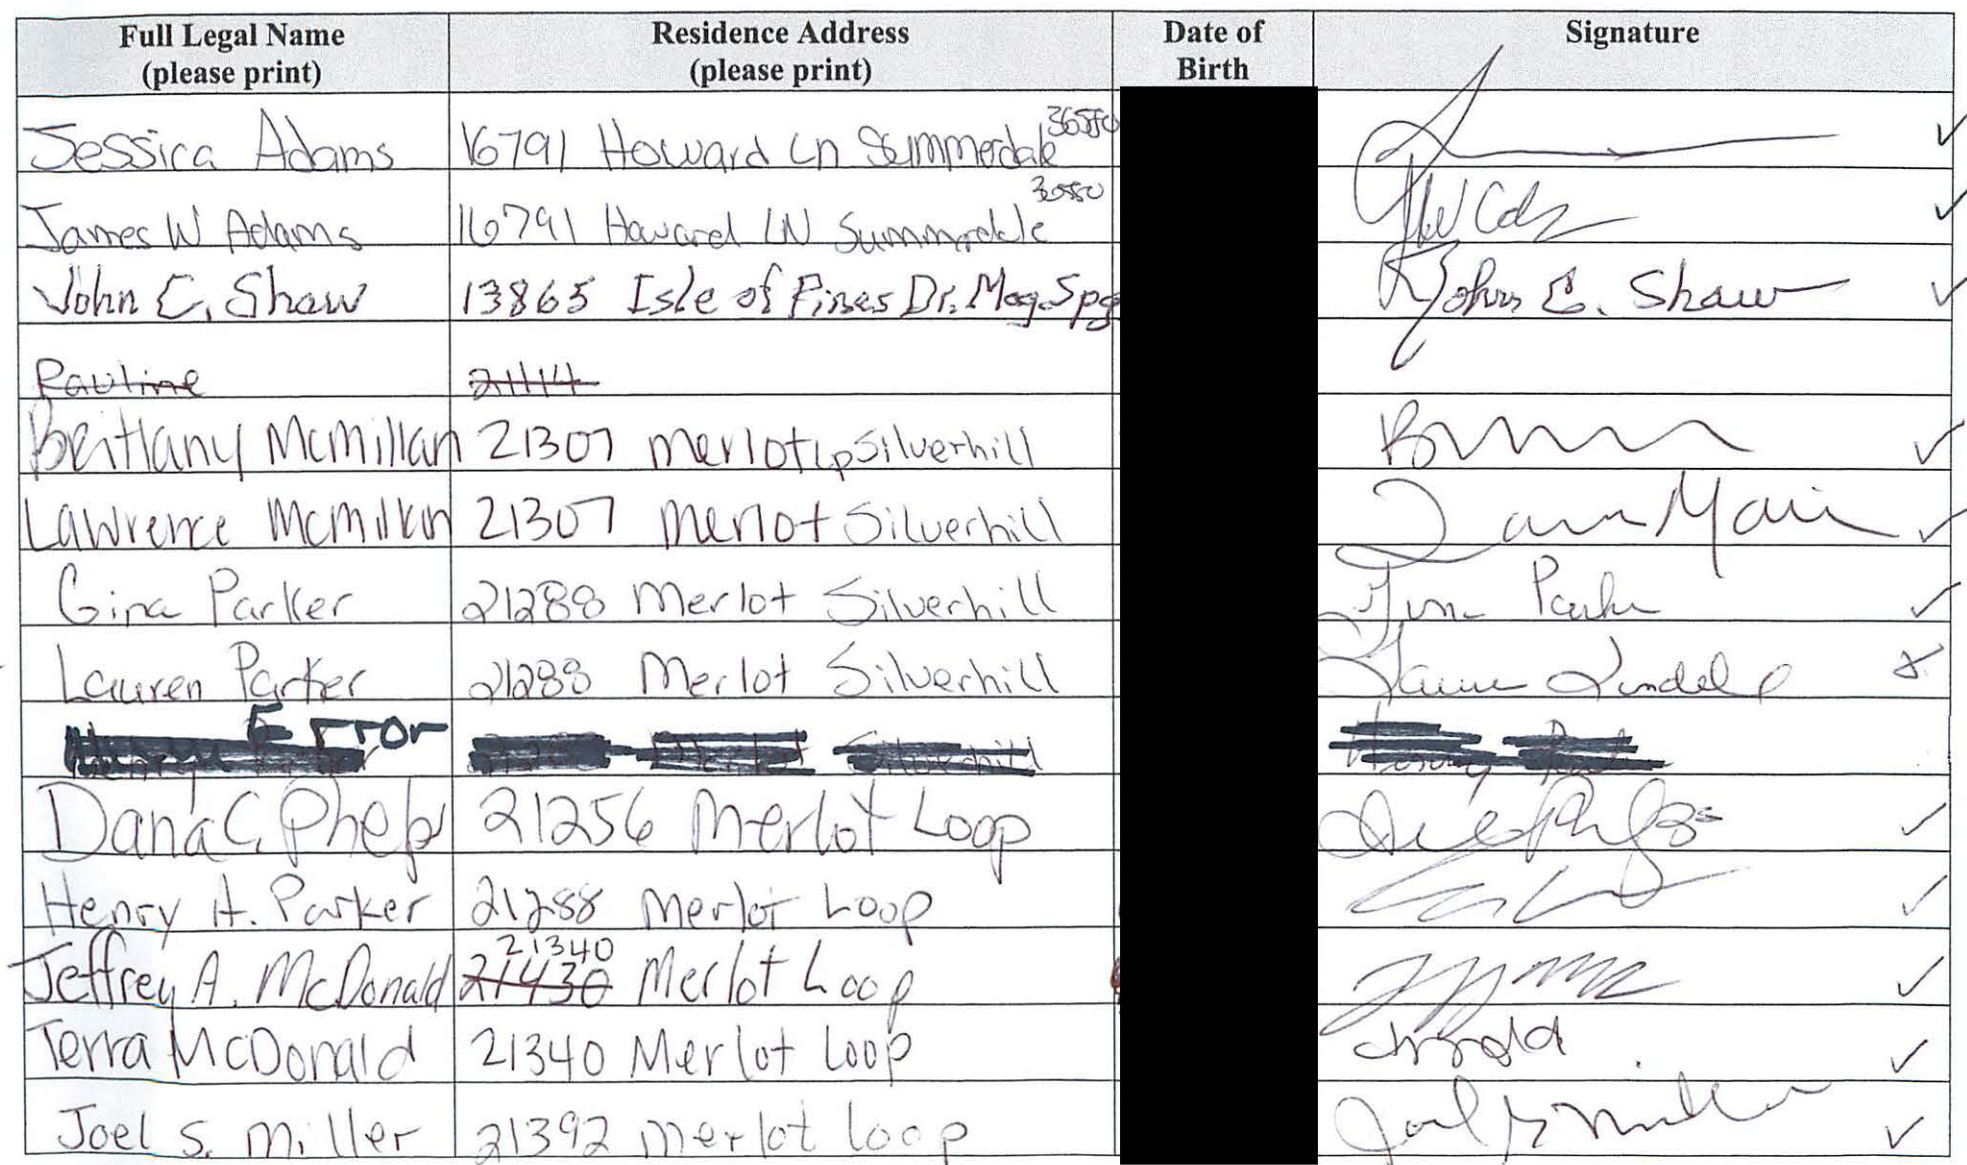 Full Legal Name Residence Address Date of Signature
(please print) (please print) Birth
Jessica Adams 16791 Howard Ln Summerdale 36580
James W Adams 16791 Howard LN Summerdale 36580
John E. Shaw 13865 Isle of Pines Dr. Mag. Spg John E. Shaw
Pauline 21114
Brittany McMillan 21307 Merlot Lp Silverhill
Lawrence McMillan 21307 Merlot Silverhill
Gina Parker 21288 Merlot Silverhill Gina Parker
Lauren Parker 21288 Merlot Silverhill
Error
Dana C. Phelps 21256 Merlot Loop
Henry A. Parker 21288 Merlot Loop
Jeffrey A. McDonald 21430 21340 Merlot Loop
Terra McDonald 21340 Merlot Loop
Joel S. Miller 21392 Merlot Loop Joel S Miller